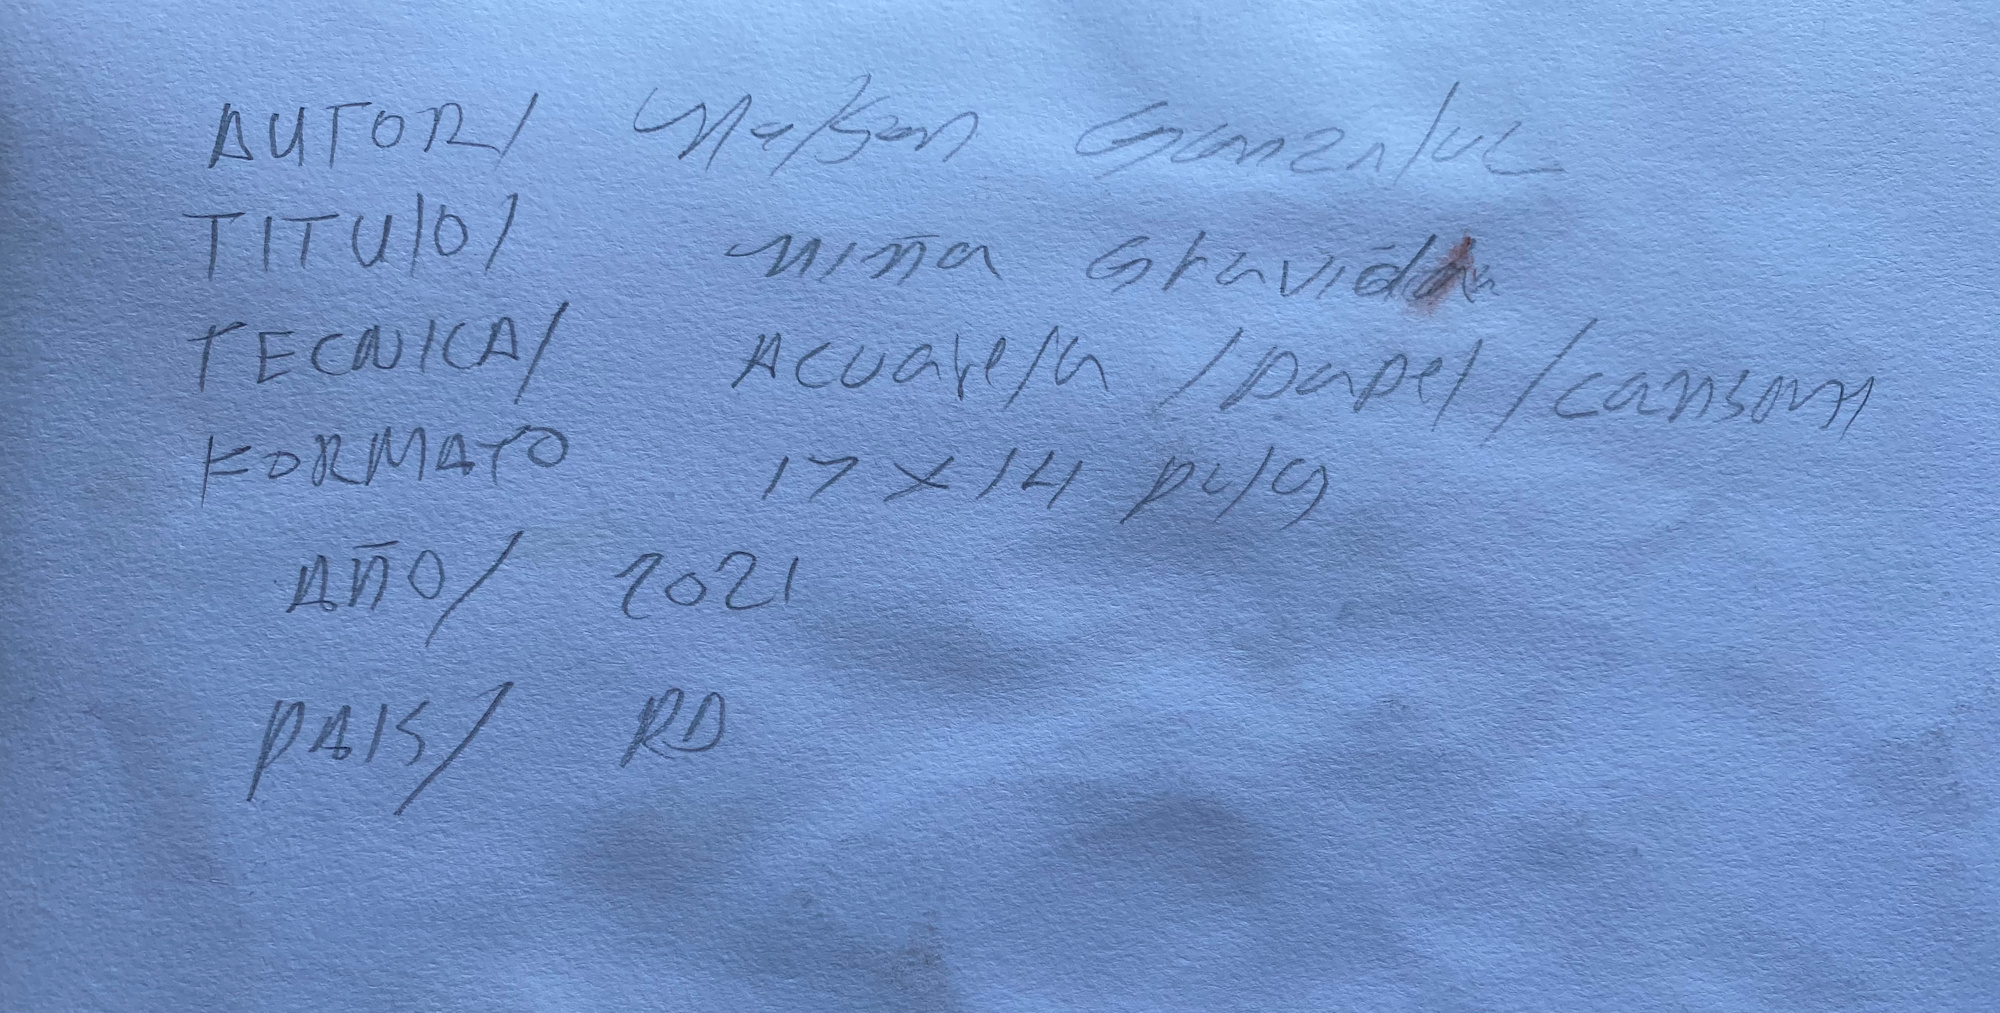 AUTOR/ Nelson Gonzalez
TITULO/ Niña Gravida
TECNICA/ Acuarela /papel/canson
FORMATO 17 x 14 pulg
AÑO/ 2021
PAIS/ RD